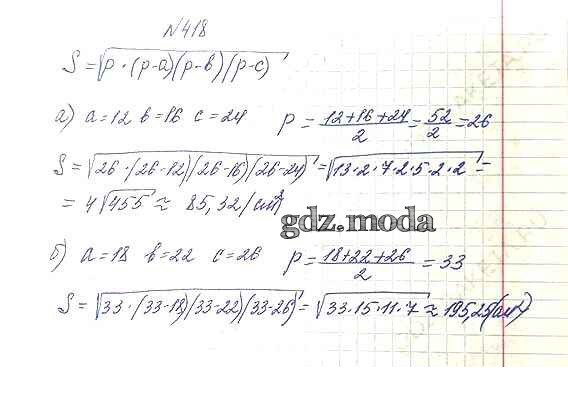 №418
S = √(p · (p-a)(p-b)(p-c))
а) a=12 b=16 c=24 p = (12+16+24)/2 = 52/2 = 26
S = √(26 · (26-12)(26-16)(26-24)) = √(13·2·7·2·5·2·2) =
= 4√455 ≈ 85,32 (см²)
gdz.moda
б) a=18 b=22 c=26 p = (18+22+26)/2 = 33
S = √(33 · (33-18)(33-22)(33-26)) = √(33·15·11·7) ≈ 195,25 (дм²)